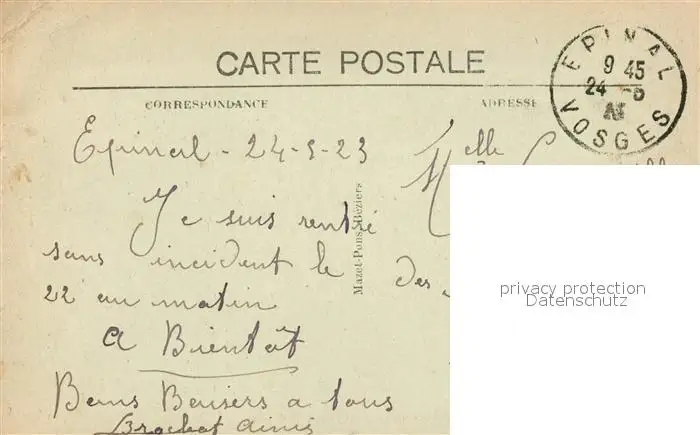 CARTE POSTALE
CORRESPONDANCE
ADRESSE
EPINAL
9 45
24 -5
VOSGES
Epinal - 24-5-23
Melle
Je suis rentré
sans incident le
22 au matin
A Bientôt
Bons Beusers a tous
des
Mazet-Pons Béziers
privacy protection
Datenschutz